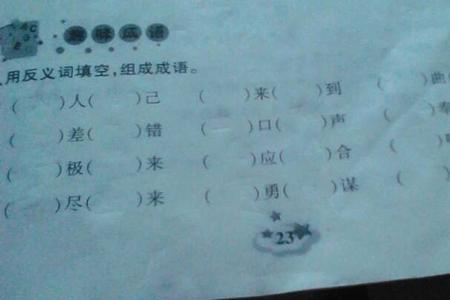 趣味成语
用反义词填空,组成成语。
( )人( )己 ( )来( )到 ( )曲
( )差( )错 ( 一 )口( )声 ( )奉
( )极( )来 ( )应( )合 ( )
( )尽( )来 ( )勇( )谋 ( )
23